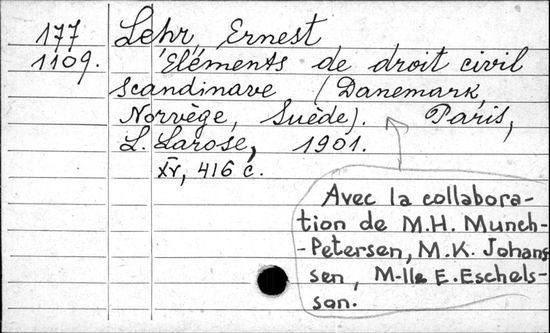 177 Lehr, Ernest
1109. Eléments de droit civil
scandinave (Danemark,
Norvège, Suède). Paris,
L. Larose, 1901.
XV, 416 c.
Avec la collabora-
tion de M.H. Munch-
-Petersen, M.K. Johans
sen, M-lle E. Eschels-
son.